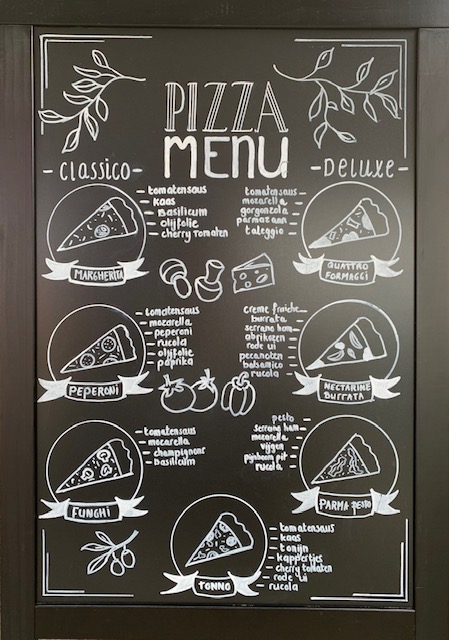 PIZZA
MENU
-CLASSICO-
tomatensaus
kaas
Basilicum
olijfolie
cherry tomaten
MARGHERITA
tomatensaus
mozarella
peperoni
rucola
olijfolie
paprika
PEPERONI
tomatensaus
mozarella
champignons
basilicum
FUNGHI
-DELUXE-
tomatensaus
mozarella
gorgonzola
parmazaan
taleggio
QUATTRO
FORMAGGI
creme fraiche
burrata
serrano ham
abrikozen
rode ui
pecanoten
balsamico
rucola
NECTARINE
BURRATA
pesto
serrano ham
mozarella
vijgen
pijnboom pit
rucola
PARMA PESTO
tomatensaus
kaas
tonijn
kappertjes
cherry tomaten
rode ui
rucola
TONNO